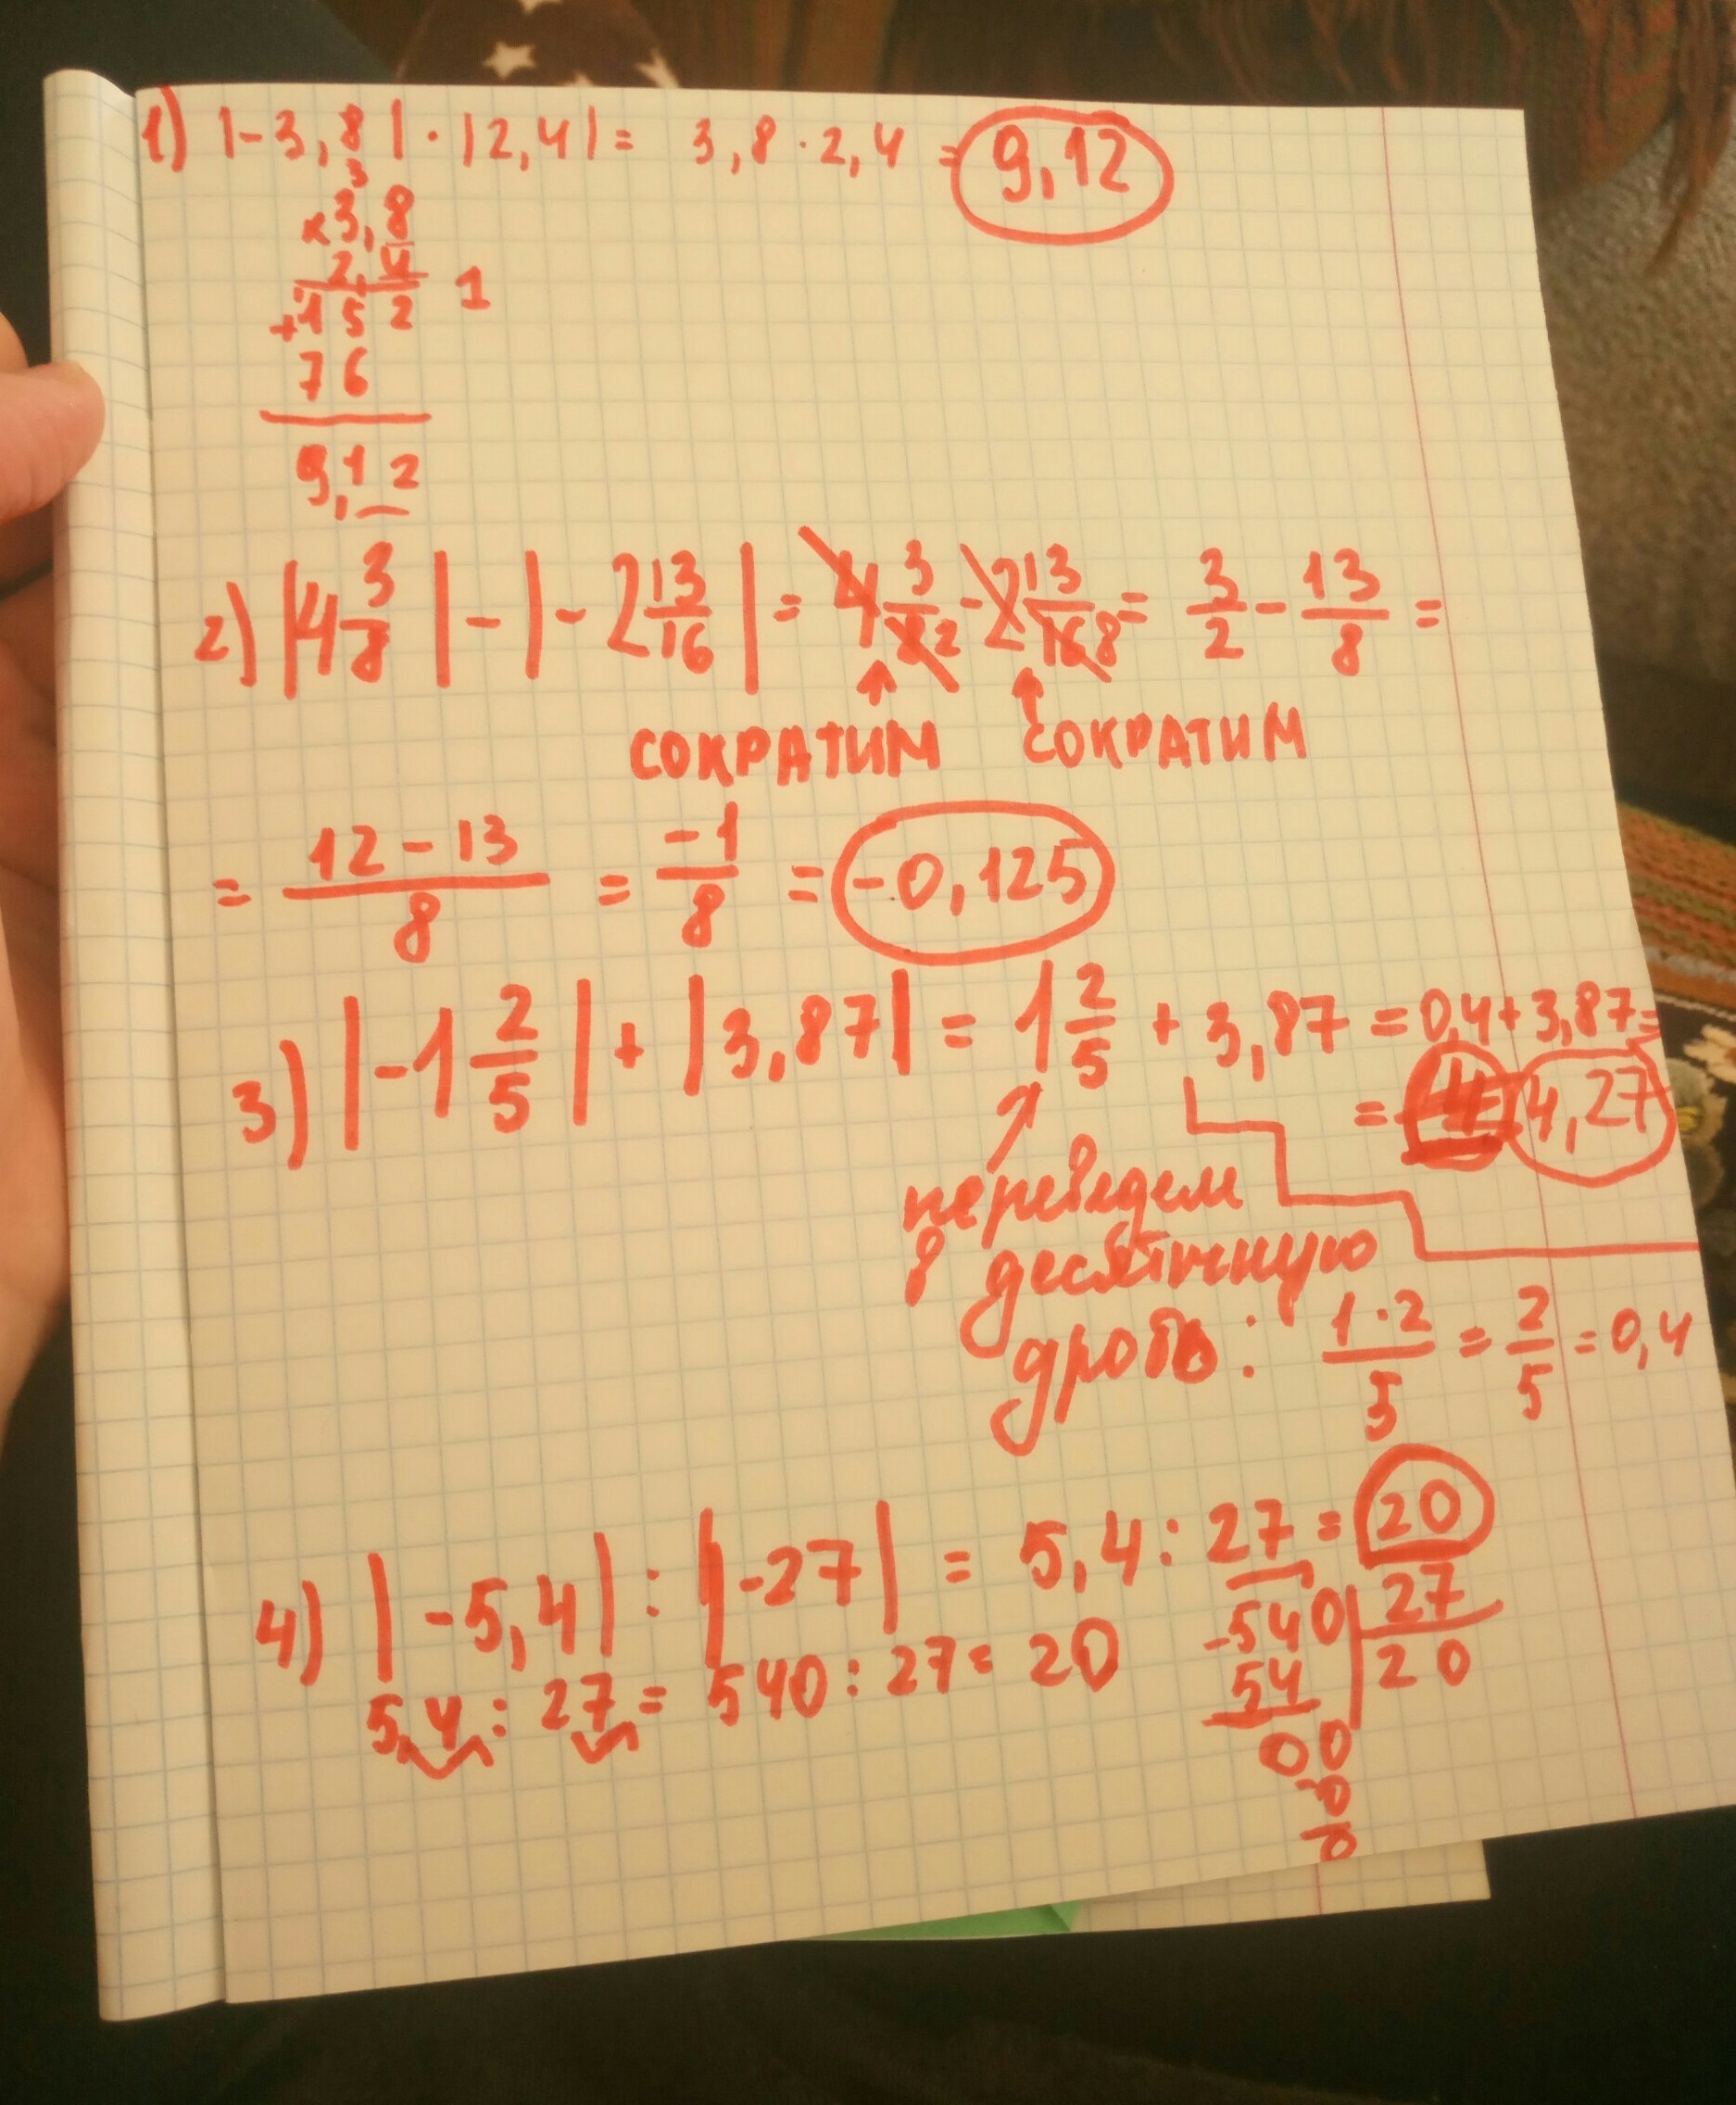 1) |-3,8| · |2,4| = 3,8 · 2,4 = 9,12
3
×3,8
2,4 1
+152
76
9,12
2) |4 3/8| - |-2 13/16| = 4 3/8 2 - 2 13/16 8 = 3/2 - 13/8 =
СОКРАТИМ СОКРАТИМ
= 12-13/8 = -1/8 = -0,125
3) |-1 2/5| + |3,87| = 1 2/5 + 3,87 = 0,4+3,87=
= 4,27
переведем
в десятичную
дробь: 1·2/5 = 2/5 = 0,4
4) |-5,4| : |-27| = 5,4 : 27 = 20
5,4 : 27 = 540 : 27 = 20
-540 | 27
54 | 20
00
-0
0